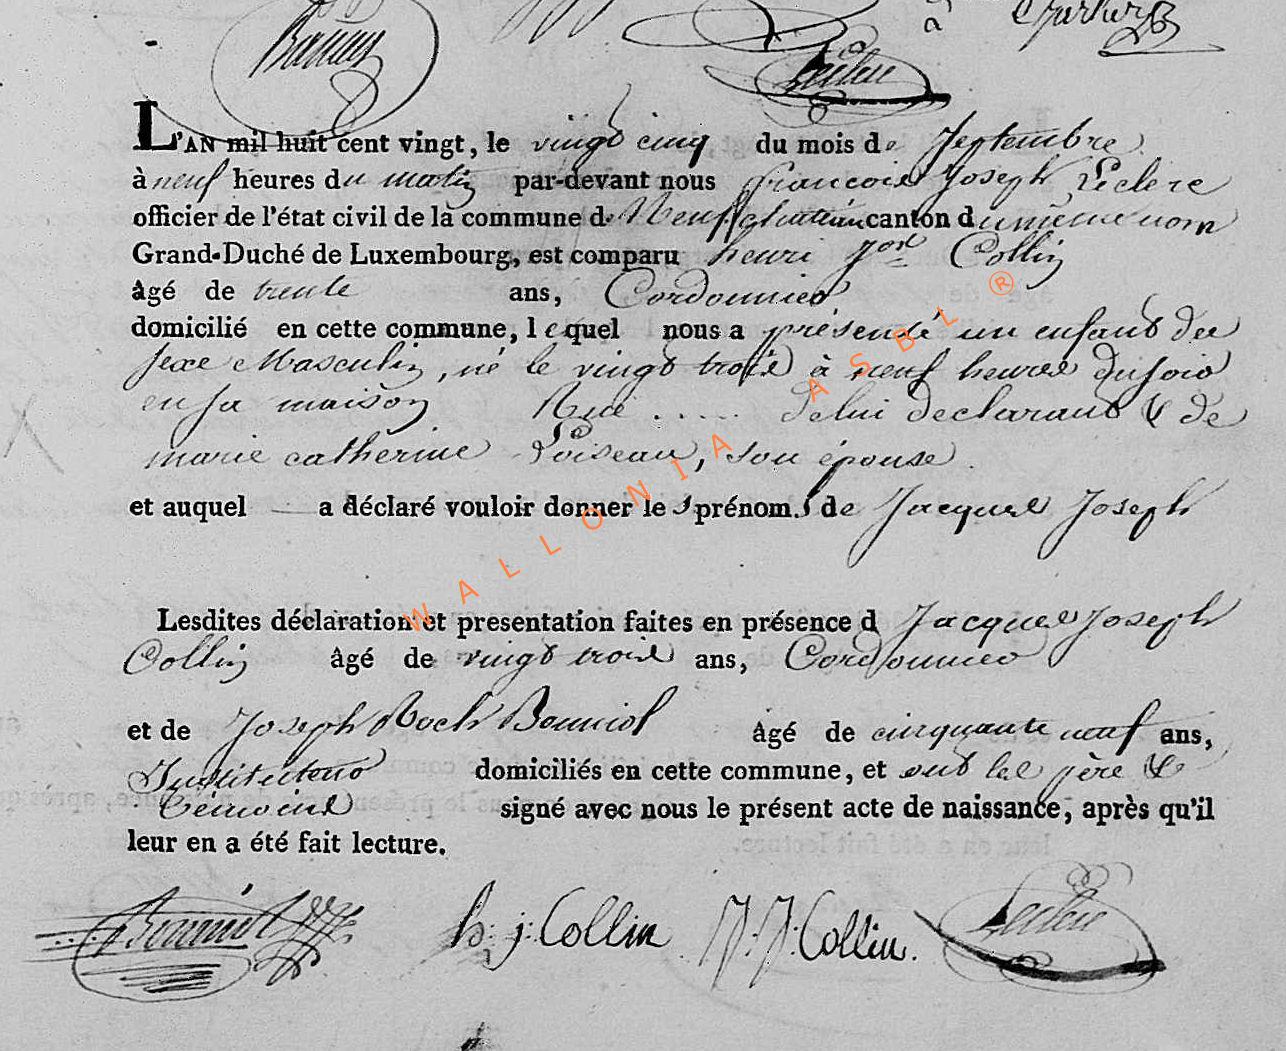 L'AN mil huit cent vingt, le vingt cinq du mois de Septembre
à neuf heures du matin par-devant nous francois Joseph Leclere
officier de l'état civil de la commune de Neufchateau canton du meme nom
Grand-Duché de Luxembourg, est comparu henri Jph Collin
âgé de trente ans, Cordonnier
domicilié en cette commune, lequel nous a présenté un enfant du
sexe Masculin, né le vingt trois à neuf heures du soir
en sa maison Rue ..... de lui declarant & de
marie catherine Loiseau, son épouse
et auquel a déclaré vouloir donner les prénoms de Jacques Joseph
Lesdites déclaration et presentation faites en présence d Jacques Joseph
Collin âgé de vingt trois ans, Cordonnier
et de Joseph Roch Bonniol âgé de cinquante neuf ans,
Instituteur domiciliés en cette commune, et ont les père &
témoins signé avec nous le présent acte de naissance, après qu'il
leur en a été fait lecture.
h. j. Collin J. J. Collin. Leclere
WALLONIA ASBL ®